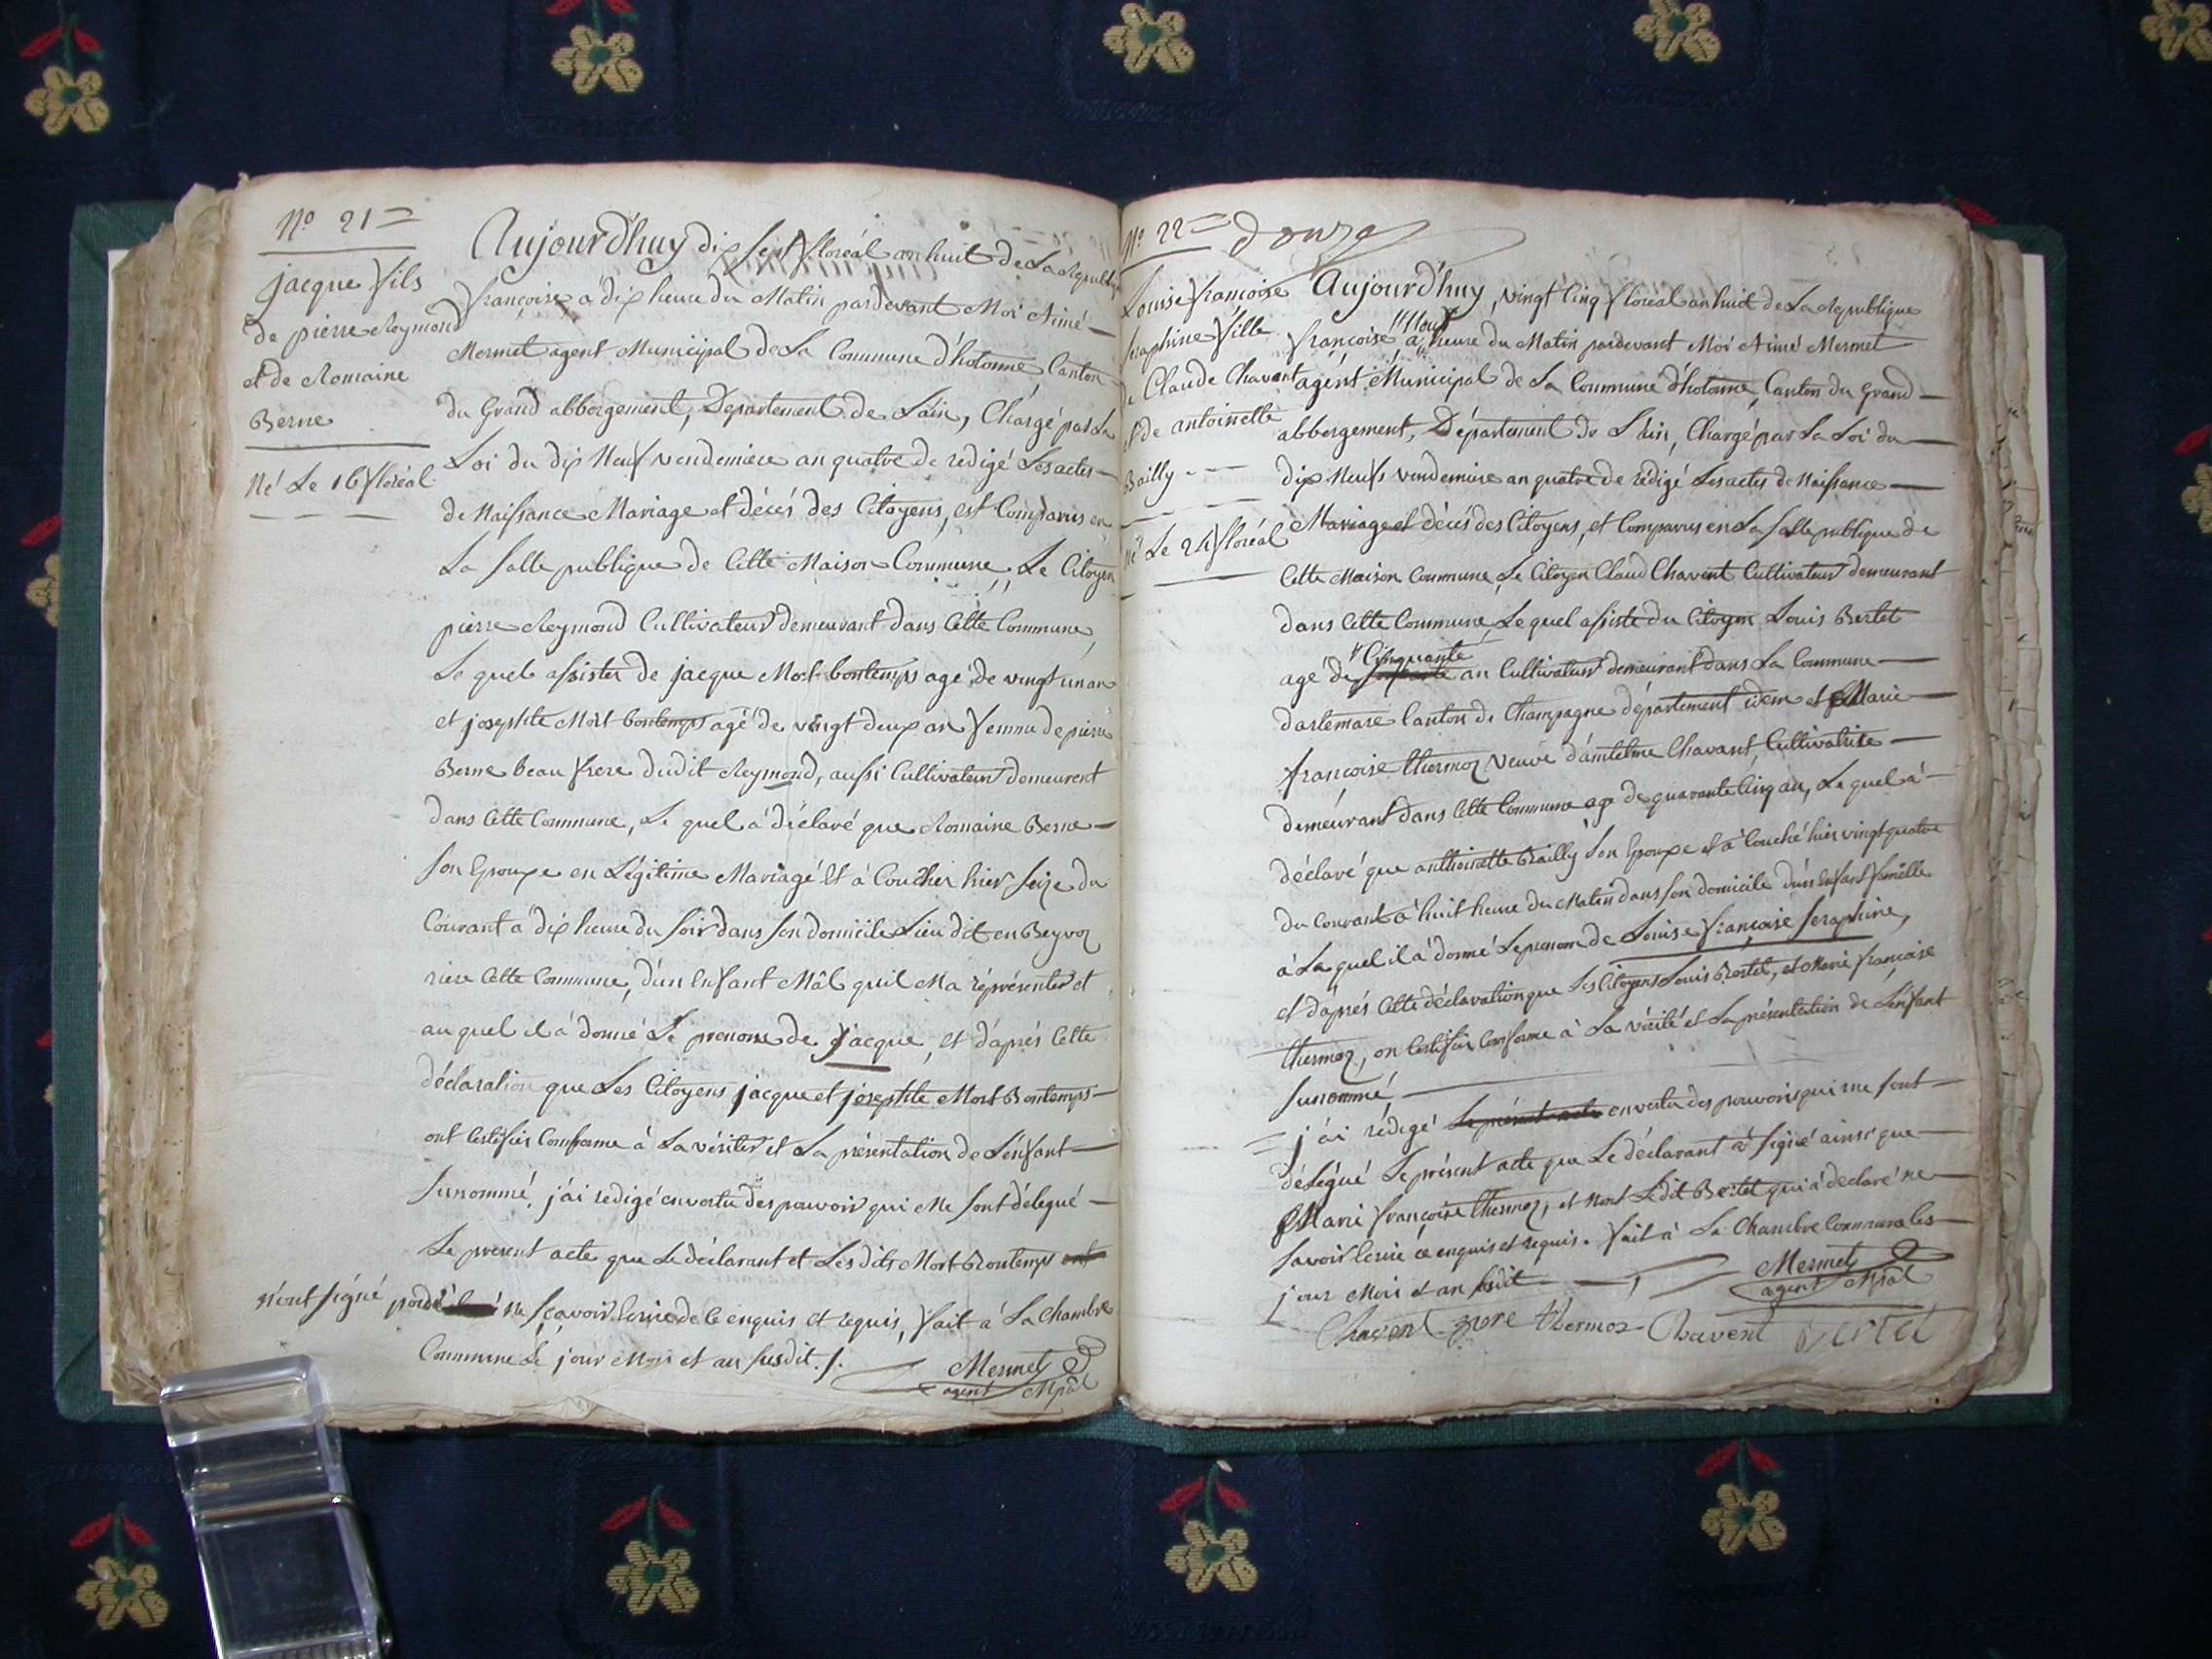 No 21
jacque fils
de pierre Reymond
et de Romaine
Berne
Né Le 16 floréal
Aujourd'huy dix sept floréal an huit de La Republ
françoise, à dix heure du Matin pardevant Moi Aimé
Mermet agent Municipal de La Commune d'hotonne Canton
du Grand abbergement, Departement de Lain, Chargé par La
Loi du dix Neuf vendemiere an quatre de redigé Les actes
de Naissance Mariage et décés des Citoyens, est Comparus en
La salle publique de Cette Maison Commune, Le Citoyen
pierre Reymond Cultivateur demeurant dans Cette Commune,
Le quel assister de jacque Mort-bontemps agé de vingt un an
et josephte Mort bontemps agé de vingt deux an femme de pierre
Berne beau frere dudit Reymond, aussi Cultivateur demeurent
dans Cette Commune, Le quel à déclaré que Romaine Berne
son Epouxe en Légitime Mariagé Et à Coucher hier seize du
Courant à dix heure du soir dans son domicile Lieu dit en Beyvoz
riere Cette Commune, d'un Enfant Mâl quil Ma répresenter et
au quel il à donné Le prenom de jacque, et d'aprés Cette
déclaration que Les Citoyens jacque et josephte Mort Bontemps
ont Certifier Comforme à La vériter et La présentation de L'enfant
sunommé, j'ai redigé en vertu des pouvoir qui Me sont délegué
Le present acte que Le déclarant et Les dits Mort Bontemps
n'ont signé pour ne sçavoir Ecrire de Ce enquis et requis, fait à La Chambre
Commune Le jour Mois et an susdit ./.
Mermet
agent Mpal
No 22
douze
Louise françoise
seraphine fille
de Claude Chavent
et de antoinette
Bailly
Né Le 24 floréal
Aujourd'huy, vingt Cinq floréal an huit de La Republique
françoise à "Neuf heure du Matin pardevant Moi Aimé Mermet
agént Municipal de La Commune d'hotonne, Canton du Grand
abbergement, Département de L'Ain, Chargé par La Loi du
dix Neufs vendemiere an quatre de rédigé Les actes de Naissance
Mariage et décés des Citoyens, et Comparus en La salle publique de
Cette Maison Commune, Le Citoyen Claud Chavent Cultivateur demeurant
dans Cette Commune, Le quel assiste du Citoyen Louis Bertet
agé de "Cinquante an Cultivateur demeurant dans La Commune
dartemare Canton de Champagne département idem et Marie
françoise thermoz veuve d'antelme Chavant, Cultivatrice
demeurant dans Cette Commune age de quarante Cinq an, Le quel à
déclaré que anthoinette Bailly son Epouxe et à Couché hier vingt quatre
du Courant à huit heure du Matin dans son domicile d'un Enfant famelle
à La quel il à donné Le prenom de Louise françoise seraphine,
et d'aprés Cette déclaration que Les Citoyens Louis Bertet, et Marie françoise
thermoz, on Certifier Comforme à La vérité et La présentation de L'enfant
sunommé,
j'ai rédigé Le présent acte en vertu des pouvoir qui me sont
délégué Le présent acte que Le déclarant à signé ainsi que
Marie françoise thermoz, et Mont Ledit Bertet qui à declaré ne
savoir Ecrire ce enquis et requis. fait à La Chambre Communale
jour Mois et an susdit
Mermet
agent Mpal
Chavent pere thermoz Chavent Bertet